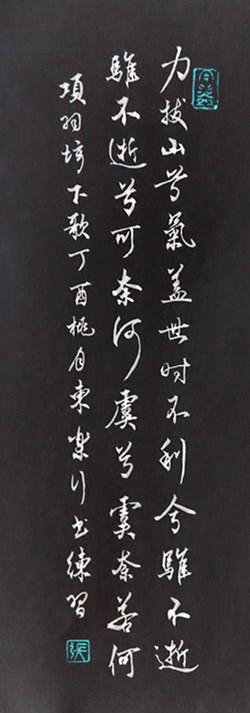 力拔山兮氣蓋世时不利兮騅不逝
騅不逝兮可奈何虞兮虞奈若何
項羽垓下歌丁酉桃月東樂行书練習
張